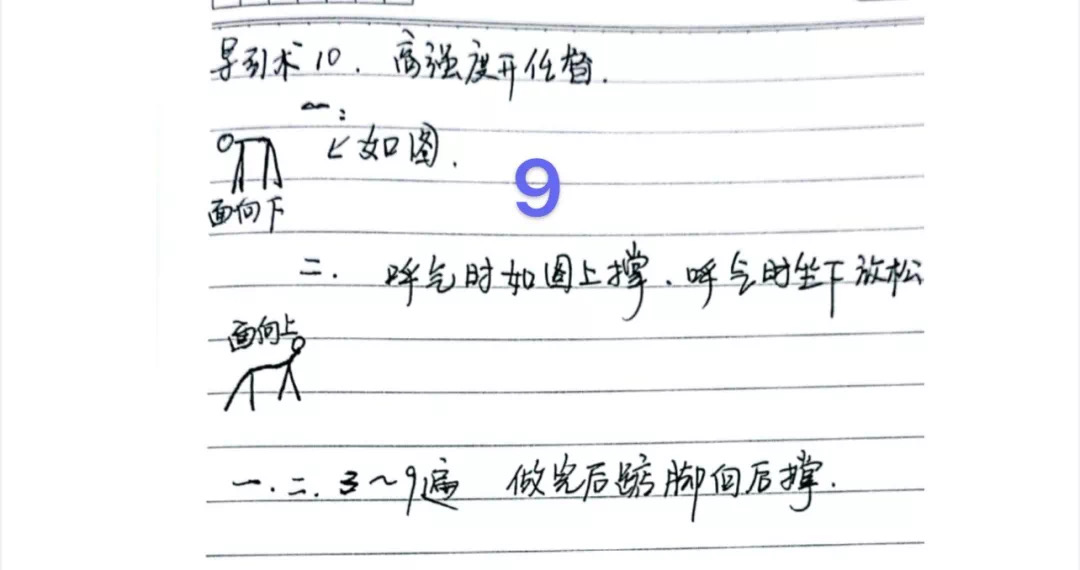 导引术10. 高强度开任督.
一:
如图.
9
面向下
二. 呼气时如图上撑. 呼气时坐下放松
面向上
一.二. 3~9遍 做完后踮脚向后撑.